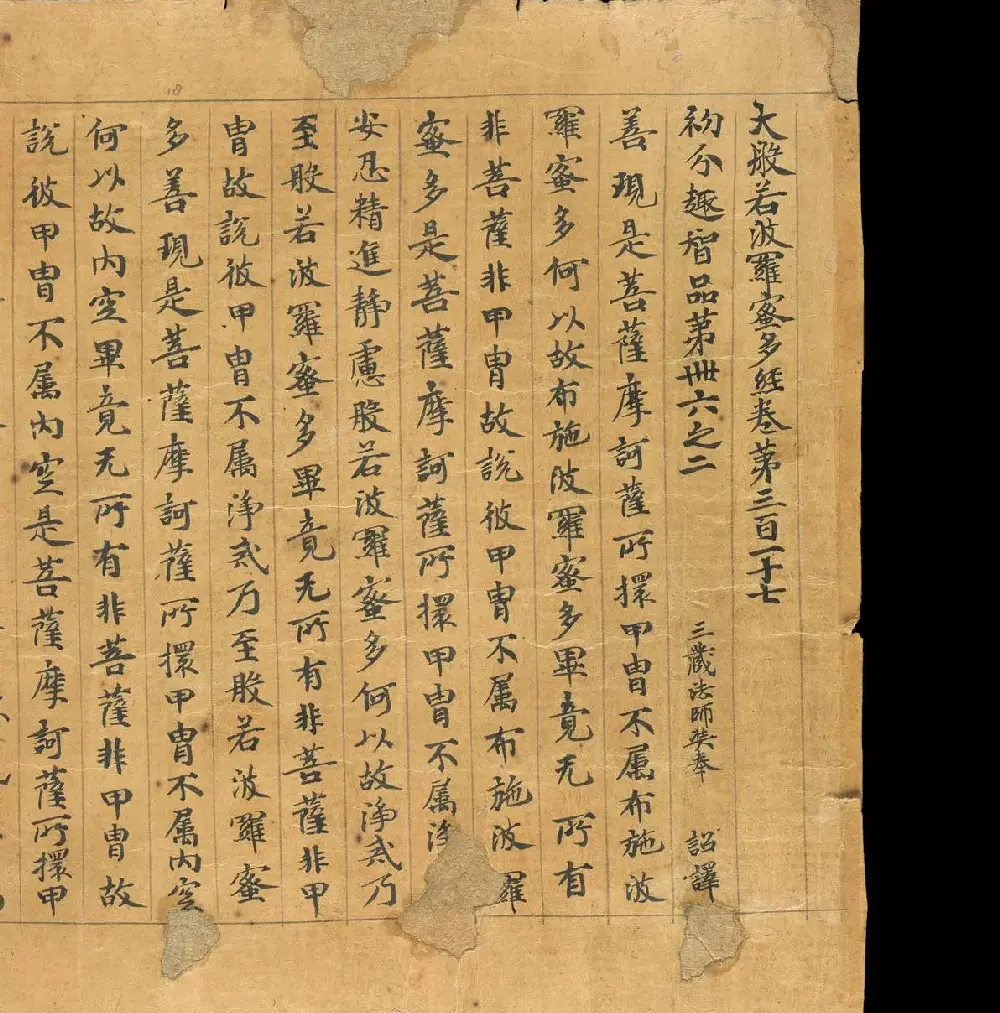 大般若波羅蜜多經卷第三百一十七
初分趣智品第卌六之二 三藏法師奘奉 詔譯
善現是菩薩摩訶薩所擐甲胄不属布施波
羅蜜多何以故布施波羅蜜多畢竟无所有
非菩薩非甲胄故說彼甲胄不属布施波羅
蜜多是菩薩摩訶薩所擐甲胄不属淨
安忍精進静慮般若波羅蜜多何以故淨戒乃
至般若波羅蜜多畢竟无所有非菩薩非甲
胄故說彼甲胄不属淨戒乃至般若波羅蜜
多善現是菩薩摩訶薩所擐甲胄不属内空
何以故内空畢竟无所有非菩薩非甲胄故
說彼甲胄不属内空是菩薩摩訶薩所擐甲